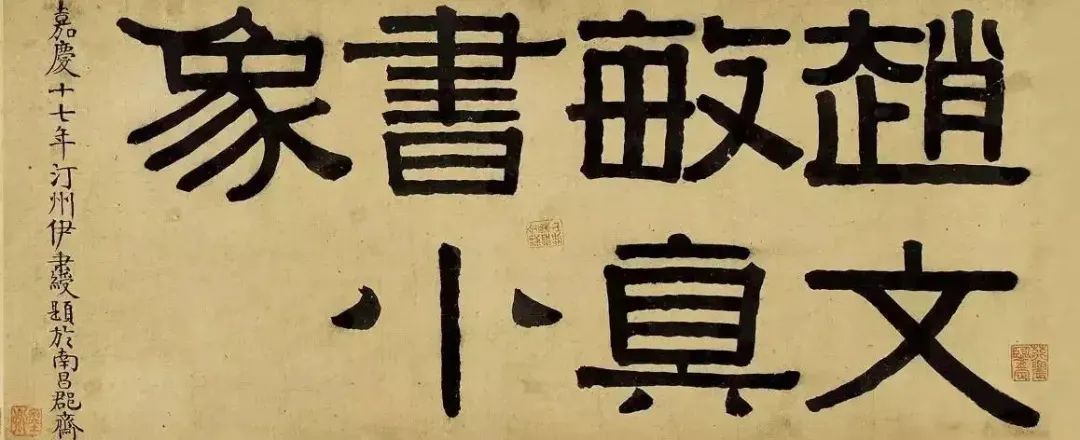 趙文
敏真
書小
象
嘉慶十七年汀州伊秉綬題於南昌郡齋